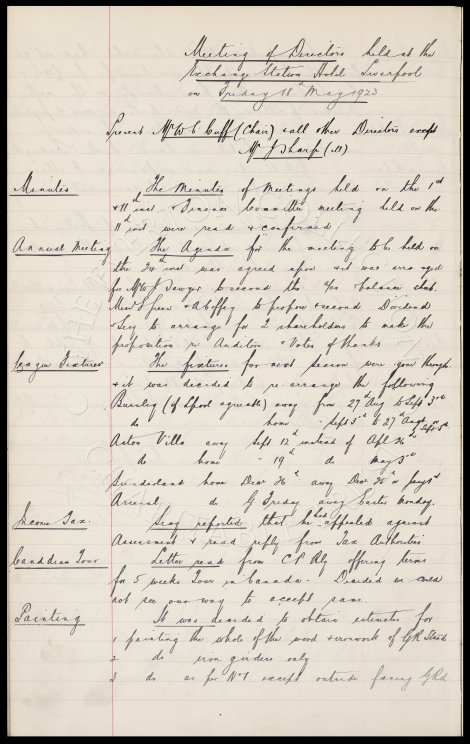 Meeting of Directors held at the
Exchange Station Hotel Liverpool
on Friday 18th May 1923
Present Mr W C Cuff (Chair) & all other Directors except
Mr J Sharp (ill)
Minutes The Minutes of Meetings held on the 1st
& 11th inst & Finance Committee meeting held on the
11th inst were read & confirmed
Annual Meeting The Agenda for the meeting to be held on
the 24th inst was agreed upon & it was arranged
for Mr W J Sawyer to second the a/cs & balance sheet
Messrs & A Coffey to propose & second Dividend
& Secy to arrange for 2 shareholders to make the
proposition re Auditors & Votes of thanks
League Fixtures The fixtures for next season were gone through
& it was decided to re-arrange the following
Burnley (if Lpool agreeable) away from 27th Aug to Sept 3rd
do home " Sept 3rd to 27th Aug or Sept
Aston Villa away Sept 12th instead of Apl 26th
do home " 19th do May 3rd
Sunderland home Decr 26th away Decr 25th or Jany 1st
Arsenal do G Friday away Easter Monday.
Income Tax. Secy reported that he had appealed against
Assessment & read reply from Tax Authorities
Canadian Tour Letter read from C P Rly offering terms
for 5 weeks Tour in Canada. Decided we could
not see our way to accept same.
Painting It was decided to obtain estimates for
1 painting the whole of the wood & ironwork of G R Stand
2 do iron girders only
3 do as per No 1 except outside facing G Rd.